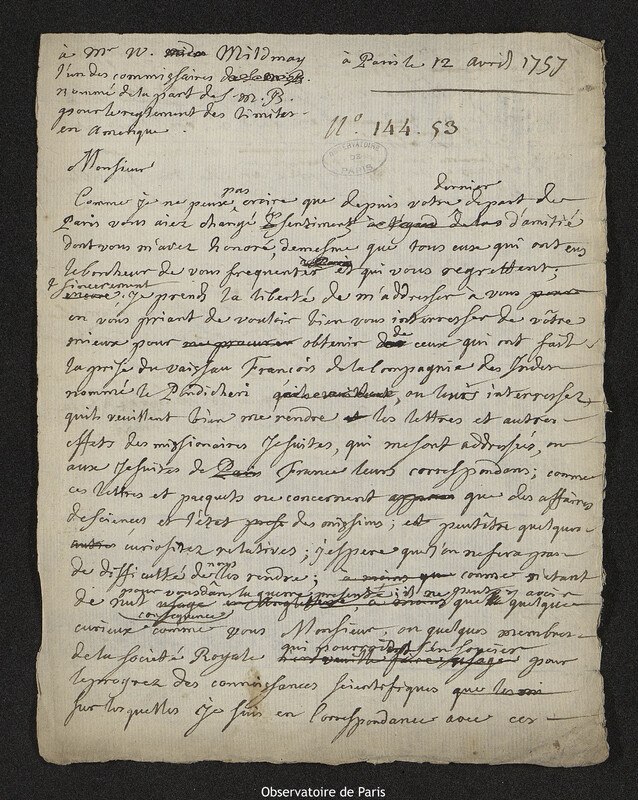 à Mr W. Mildmay
l'un des commissaires
nommé de la part de S. M. B.
pour le reglement des limites
en Amerique.
à Paris le 12 avril 1757
N° 144. 53
OBSERVATOIRE DE PARIS
Monsieur
Comme je ne peux pas croire que depuis votre dernier depart de
Paris vous aiez changé de sentiment d'amitié
dont vous m'avez honoré, demesme que tous ceux qui ont eu
le bonheur de vous frequenter et qui vous regrettent
sincerement; je prends la liberté de m'addresser à vous
en vous priant de vouloir bien vous interresser de vôtre
mieux pour obtenir de ceux qui ont fait
la prise du vaisseau François de la Compagnie des Indes
nommé le Pondicheri, ou leurs interressez
qu'ils veuillent bien me rendre les lettres et autres
effets des missionaires Jesuites, qui me sont addressés, ou
aux Jesuites de France leurs correspondans; comme
ces lettres et pacquets ne concernent que des affaires
de sciences et l'état des missions; et peutêtre quelques
curiositez relatives; j'espere que l'on ne fera pas
de difficulté de nous les rendre; comme n'etant
de nul consequence pour vous dans la guerre presente, que quelque
curieux comme vous Monsieur, ou quelques membres
de la Societé Royale qui pourroient s'en soucier pour
le progrez des connoissances scientifiques
sur lesquelles je suis en Correspondance avec ces
Observatoire de Paris